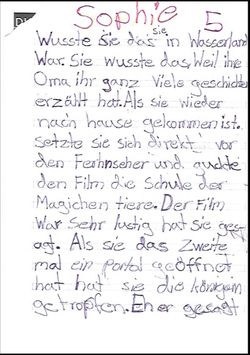 Sophie 5
sie
Wusste Sie das in Wasserland
War. Sie wusste das, Weil ihre
Oma ihr ganz Viele geschichten
erzällt hat. Als sie wieder
nach hause gekommen ist.
setzte sie sich direkt vor
den Ferhnseher und guckte
den Film die Schule der
Magichen tiere. Der Film
War sehr lustig hat sie gees
agt. Als sie das Zweite
mal ein portal geöffnet
hat hat sie die königin
getropfen. Eher gesagt